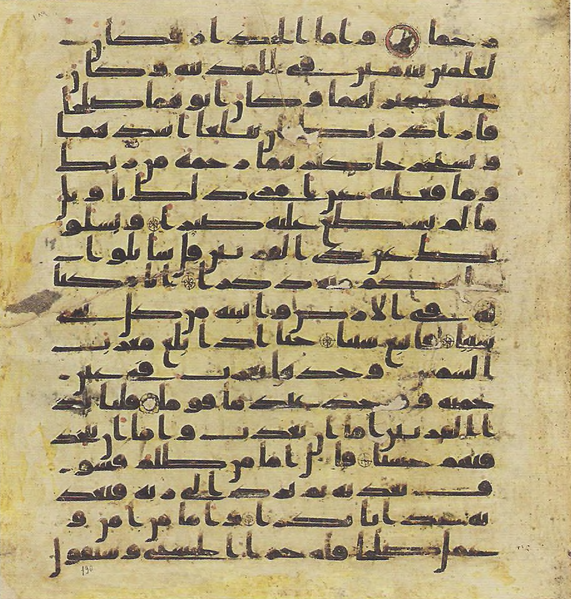 رحما واما الجدار فكان
لغلمين يتيمين في المدينه وكان
تحته كنز لهما وكان ابوهما صلحا
فاراد ربك ان يبلغا اشدهما
ويستخرجا كنزهما رحمه من ربك
وما فعلته عن امري ذلك تاويل
ما لم تسطع عليه صبرا ويسلو
نك عن ذي القرنين قل ساتلوا
عليكم منه ذكرا انا مكنا
له في الارض واتينه من كل شي
سببا فاتبع سببا حتى اذا بلغ مغرب
الشمس وجدها تغرب في عين
حميه ووجد عندها قوما قلنا يذا
القرنين اما ان تعذب واما ان تتخذ
فيهم حسنا قال اما من ظلم فسو
ف نعذبه ثم يرد الى ربه فيعذ
به عذابا نكرا واما من امن و
عمل صلحا فله جزا الحسنى وسنقول